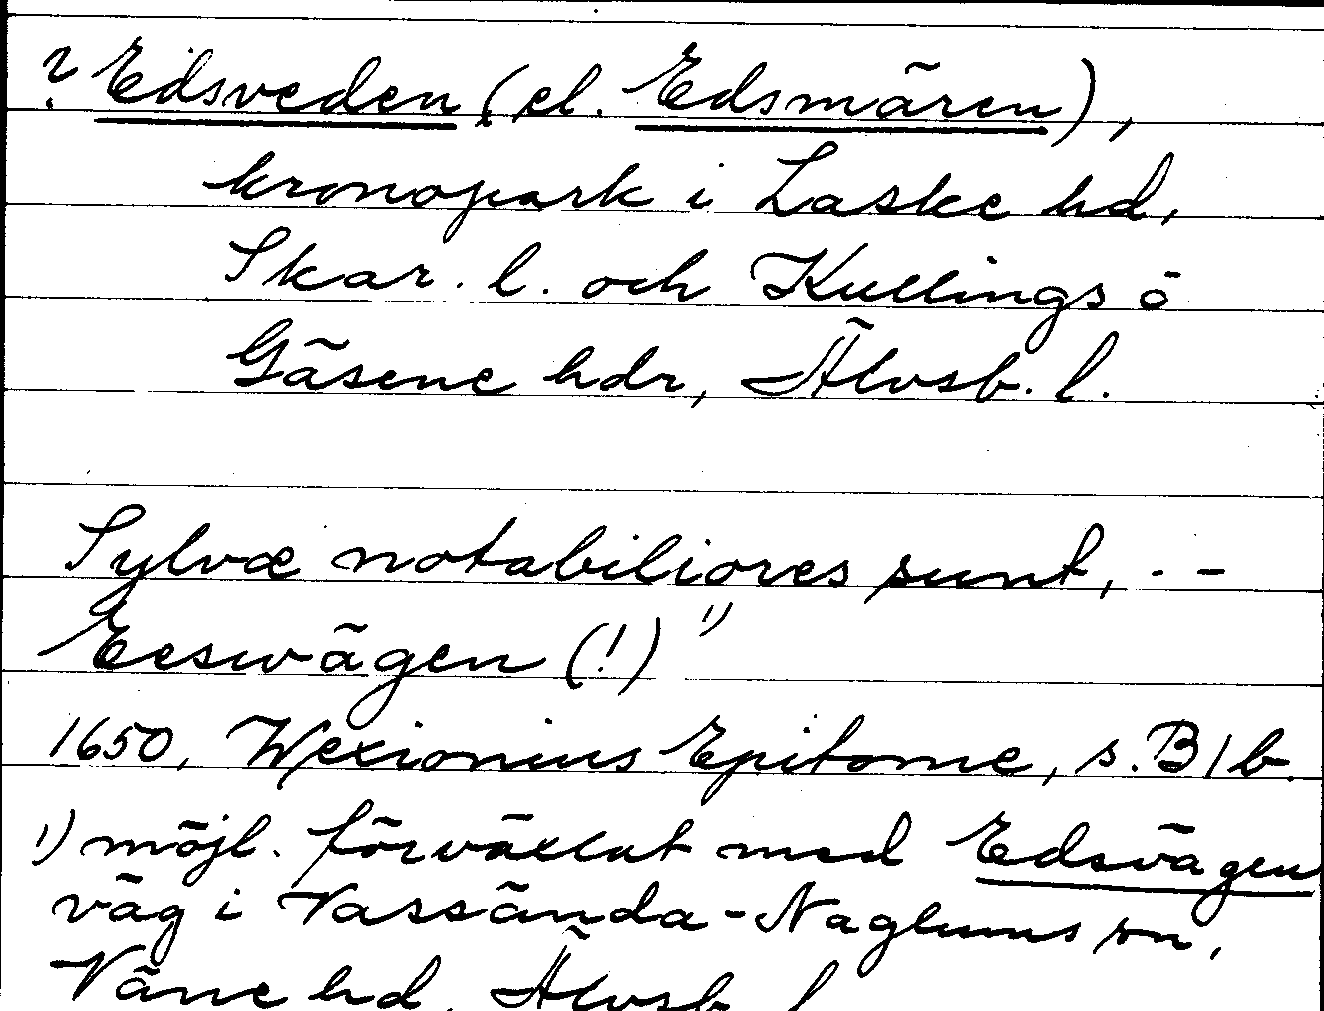 ? Edsveden (el. Edsmären),
kronopark i Laske hd,
Skar. l. och Kullings o
Gäsene hdr, Älvsb. l.
Sylvæ notabiliores sunt, . -
Eeswägen (!) 1)
1650, Wexionius Epitome, s. B 1 b.
1) möjl. förväxlat med Edsvägen
väg i Vassända-Naglums sn,
Väne hd, Älvsb. l